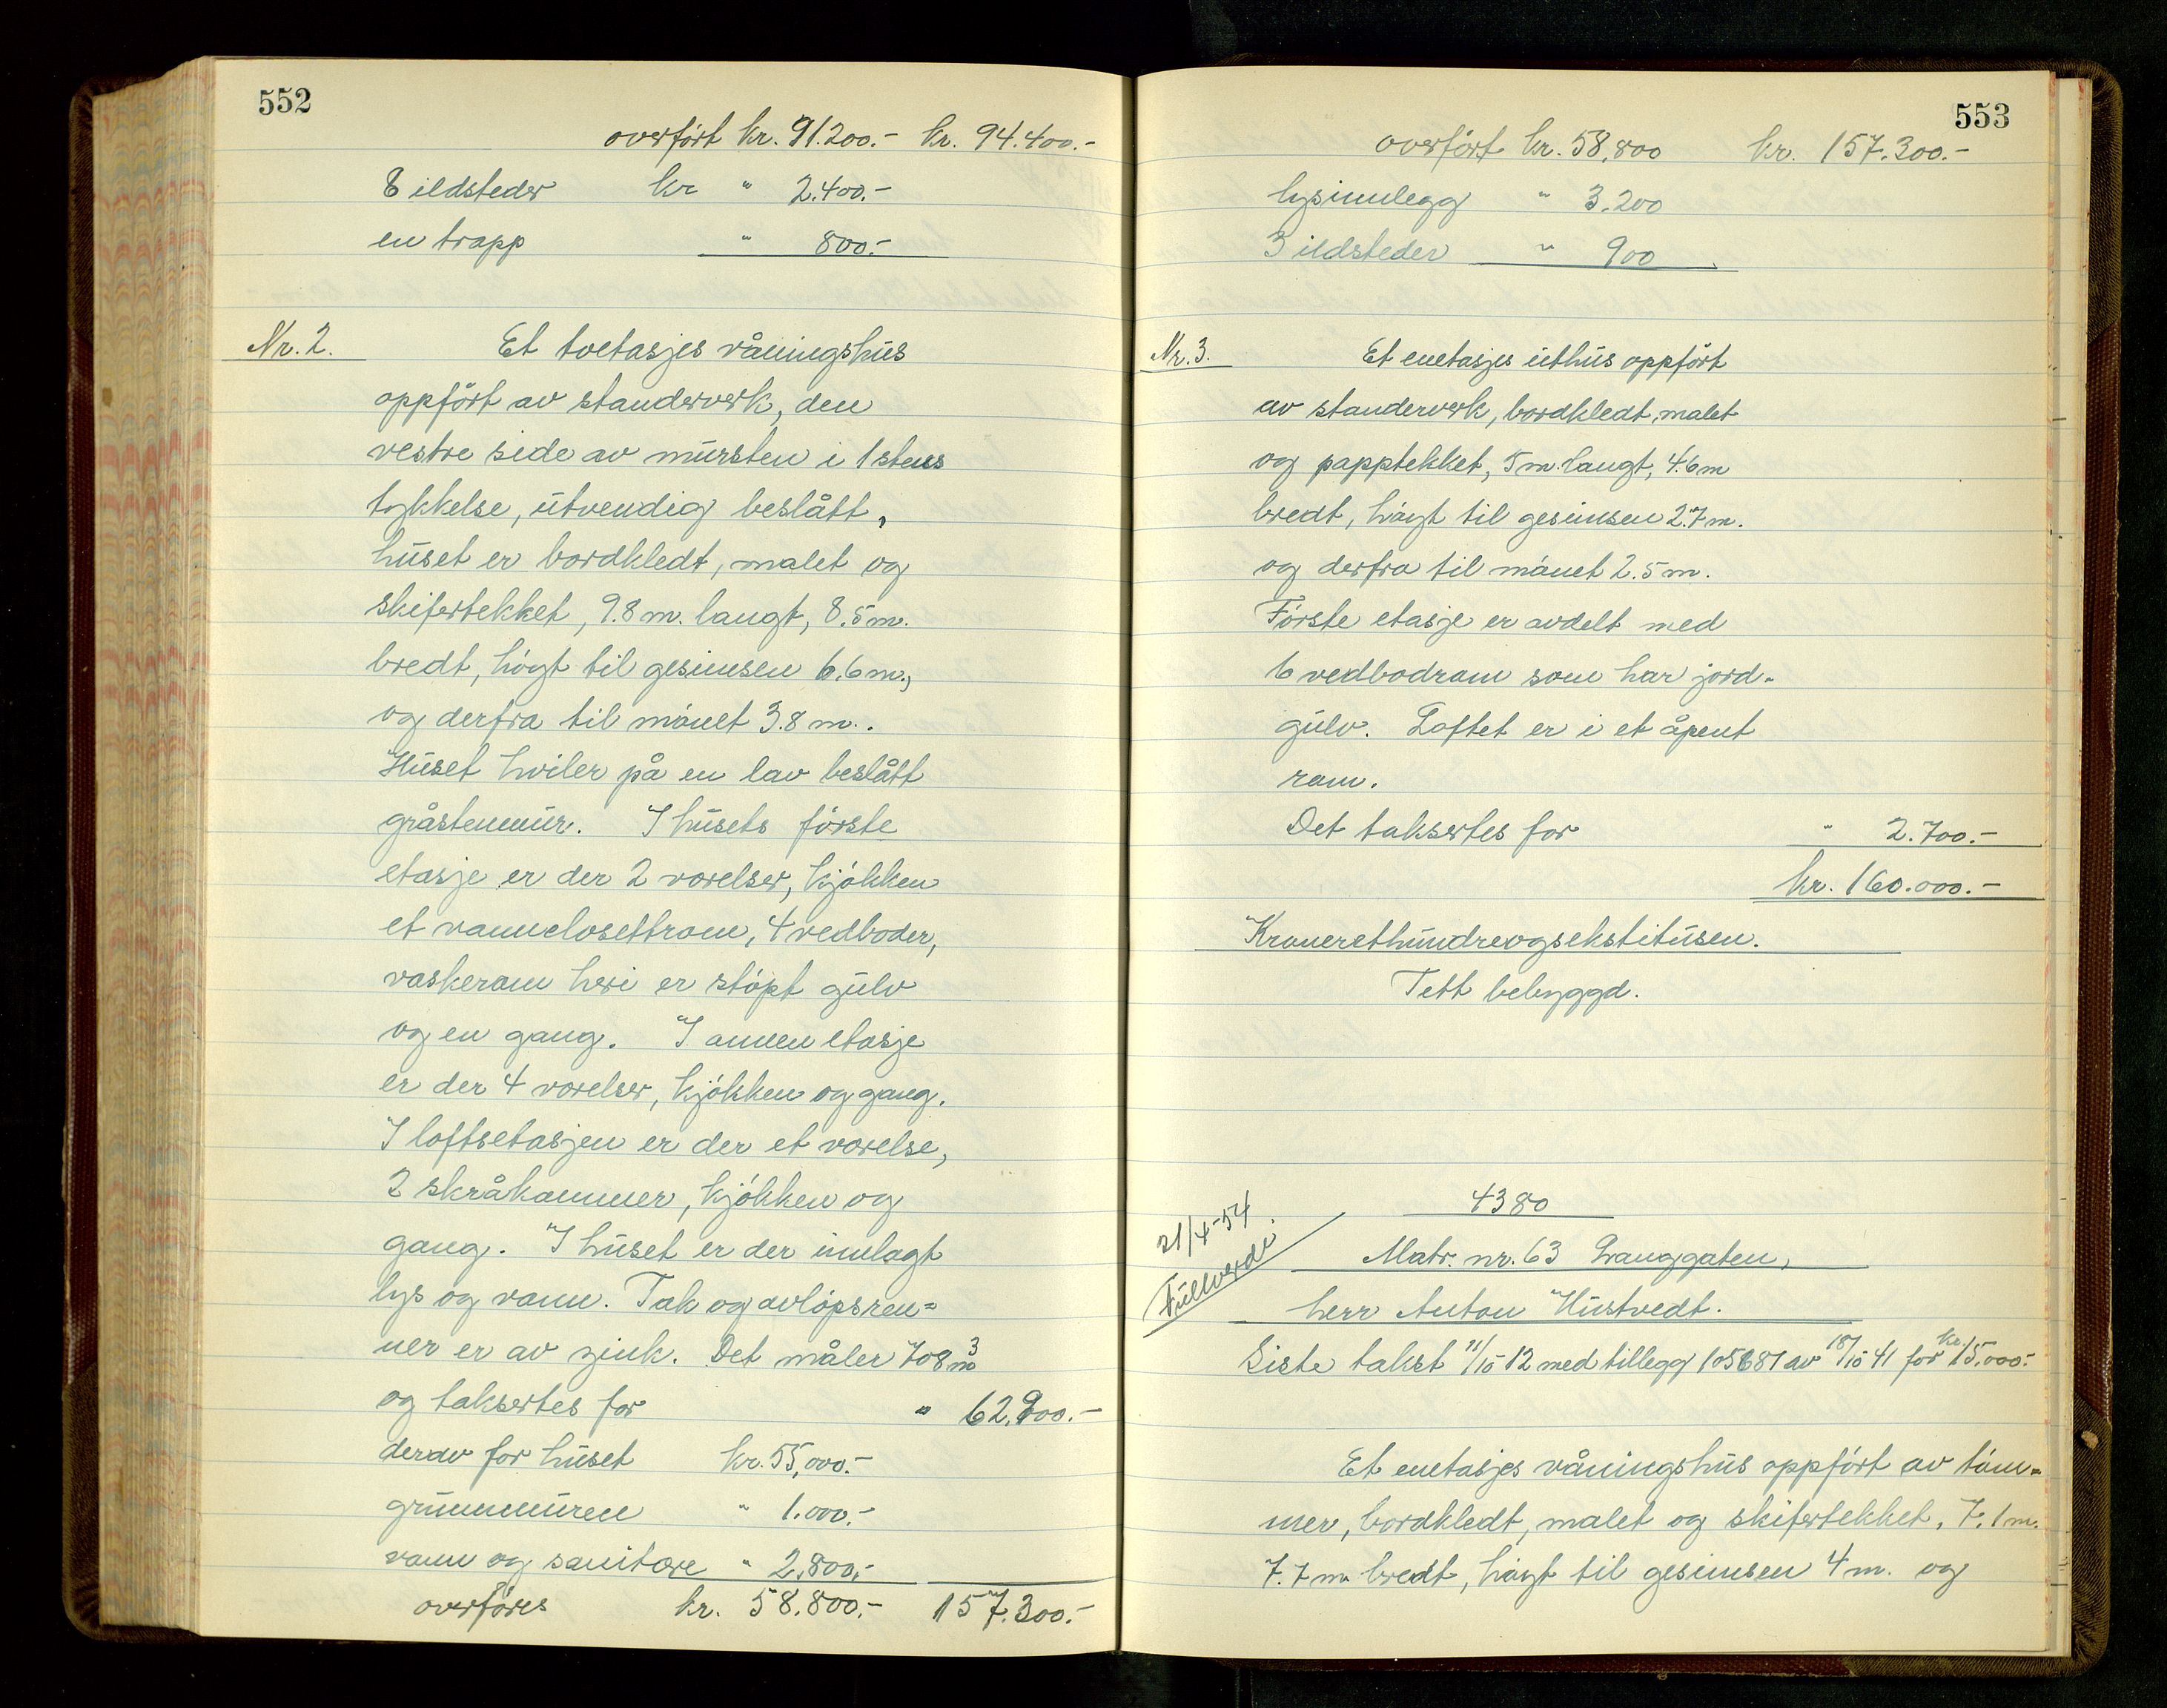 552
overført kr. 91.200.- kr. 94.400.-
8 ildsteder kr " 2.400.-
en trapp " 800.-
Nr. 2. Et toetasjes våningshus
oppført av standerverk, den
vestre side av mursten i 1 stens
tykkelse, utvendig beslått,
huset er bordkledt, malet og
skifertekket, 9.8 m. langt, 8.5 m.
bredt, høgt til gesimsen 6.6 m.,
og derfra til mønet 3.8 m..
Huset hviler på en lav beslått
gråstenmur. I husets første
etasje er der 2 værelser, kjøkken
et vannclosettrom, 4 vedboder,
vaskerom heri er støpt gulv
og en gang. I annen etasje
er der 4 værelser, kjøkken og gang.
I loftsetasjen er der et værelse,
2 skråkammer, kjøkken og
gang. I huset er der innlagt
lys og vann. Tak og avløpsren=
ner er av zink. Det måler 708 m³
og taksertes for " 62.900.-
derav for huset kr. 55,000.-
grunnmuren " 1.000.-
vann og sanitære " 2,800,-
overføres kr. 58.800.- 157.300.-
553
overført kr. 58,800 kr. 157.300.-
lysinnlegg " 3.200
3 ildsteder " 900
Nr. 3. Et enetasjes uthus oppført
av standerverk, bordkledt, malet
og papptekket, 5 m. langt, 4.6 m
bredt, høgt til gesimsen 2.7 m.
og derfra til mønet 2.5 m.
Første etasje er avdelt med
6 vedbodrom som har jord-
gulv. Loftet er i et åpent
rom.
Det taksertes for " 2.700.-
kr. 160.000.-
Kronerethundreogsekstitusen.
Tett bebyggd.
4380
21/4-54
Fullverdi.
Matr. nr. 63 Pranggaten,
herr Anton Hustvedt.
Siste takst 11/10 12 med tillegg 105687 av 18/10 41 for kr. 15.000.-
Et enetasjes våningshus oppført av tøm=
mer, bordkledt, malet og skifertekket, 7.1 m.
7.7 m bredt, høgt til gesimsen 4 m. og